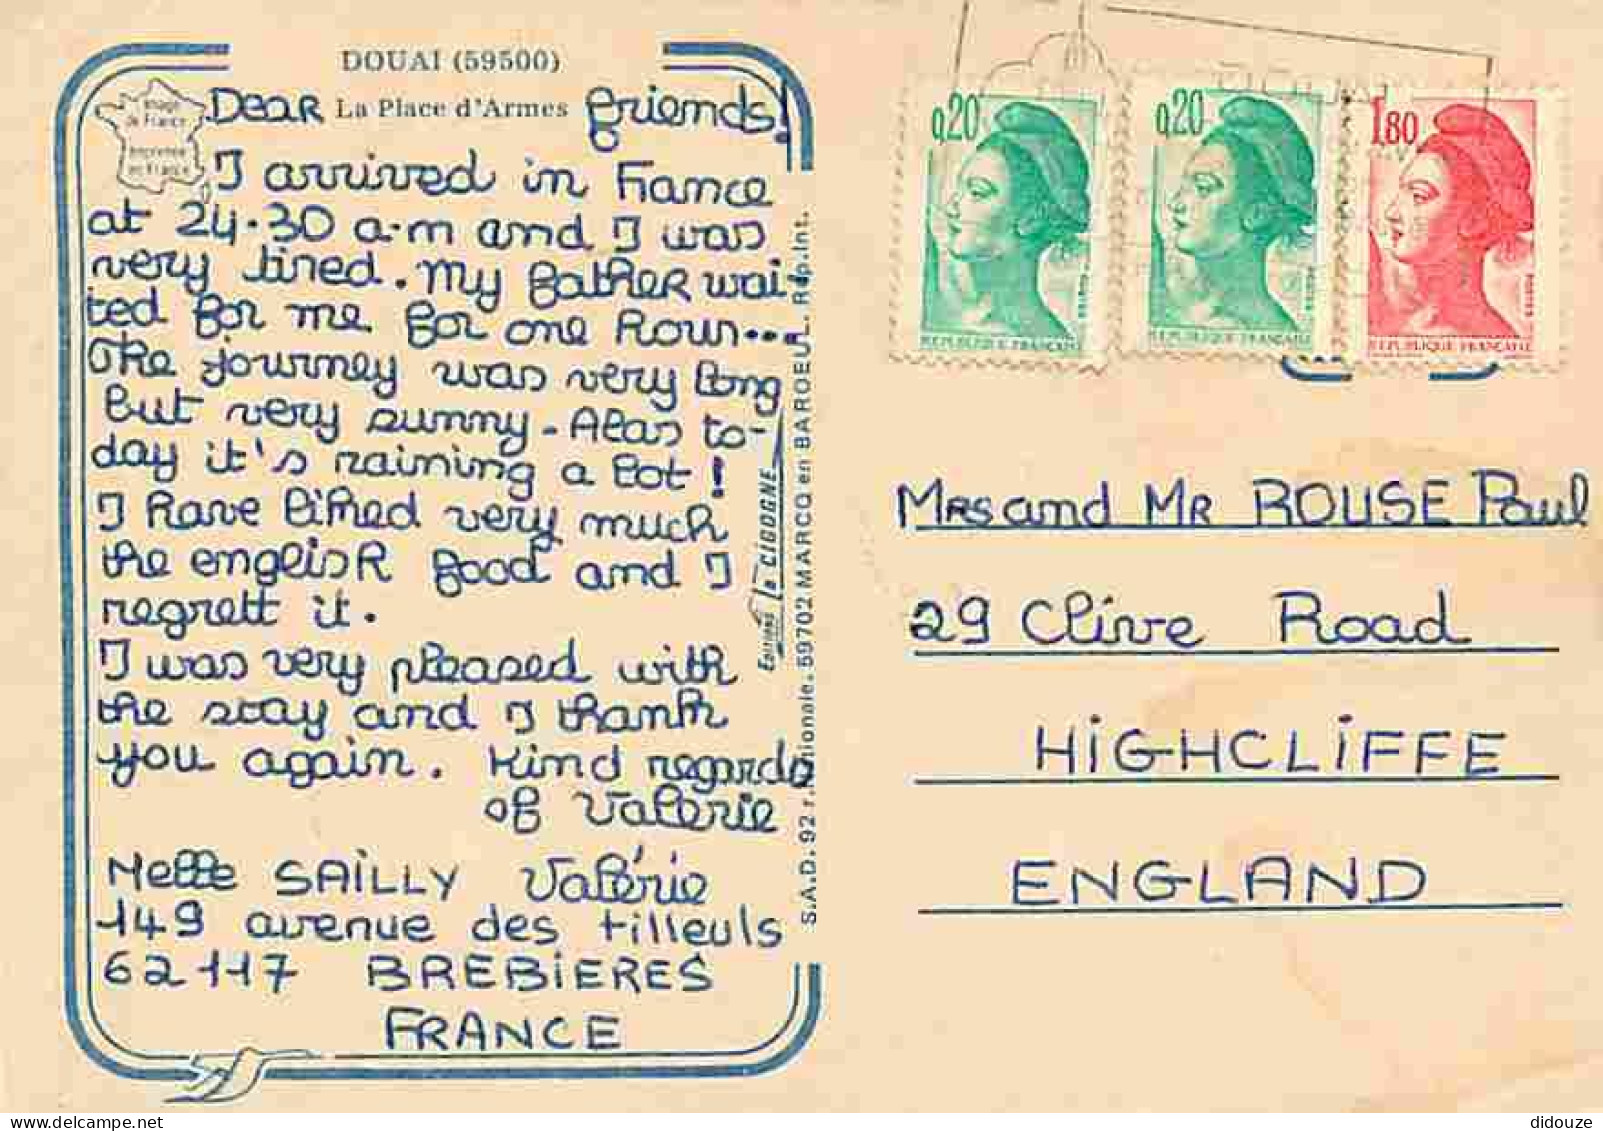 DOUAI (59500)
La Place d'Armes
Image
de France
Imprimé
en France
Dear friends!
I arrived in France
at 24.30 a.m and I was
very tired. My father wai-
ted for me for one hour...
The journey was very long
but very sunny - Alas to-
day it's raining a lot!
I have liked very much
the english food and I
regrett it.
I was very pleased with
the stay and I thank
you again. Kind regards
of Valerie
Melle SAILLY Valérie
149 avenue des tilleuls
62117 BREBIERES
FRANCE
Editions la CIGOGNE
S.A.D. 92 r. Nationale. 59702 MARCQ en BAROEUL. Rép.Int.
0,20
POSTES
REPUBLIQUE FRANÇAISE
0,20
POSTES
REPUBLIQUE FRANÇAISE
1,80
POSTES
REPUBLIQUE FRANÇAISE
Mrs and Mr ROUSE Paul
29 Clive Road
HIGHCLIFFE
ENGLAND
didouze